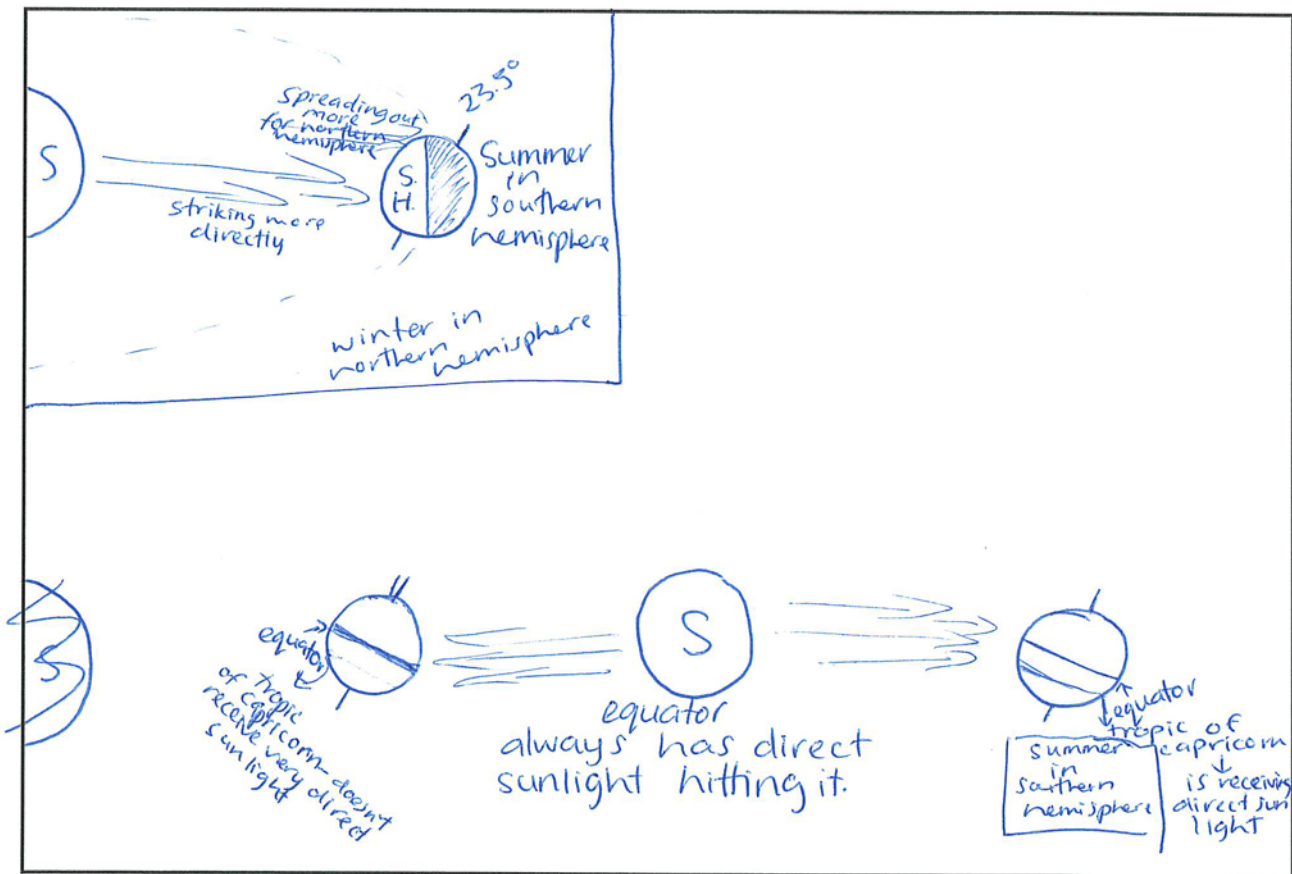 S
spreading out
more
for northern
hemisphere
23.5°
S.
H.
Summer
in
southern
hemisphere
striking more
directly
winter in
northern
hemisphere
S
equator
tropic
of capricorn-doesn't
receive very direct
sunlight
S
equator
always has direct
sunlight hitting it.
equator
tropic of
capricorn
is receiving
direct sun
light
summer
in
southern
hemisphere